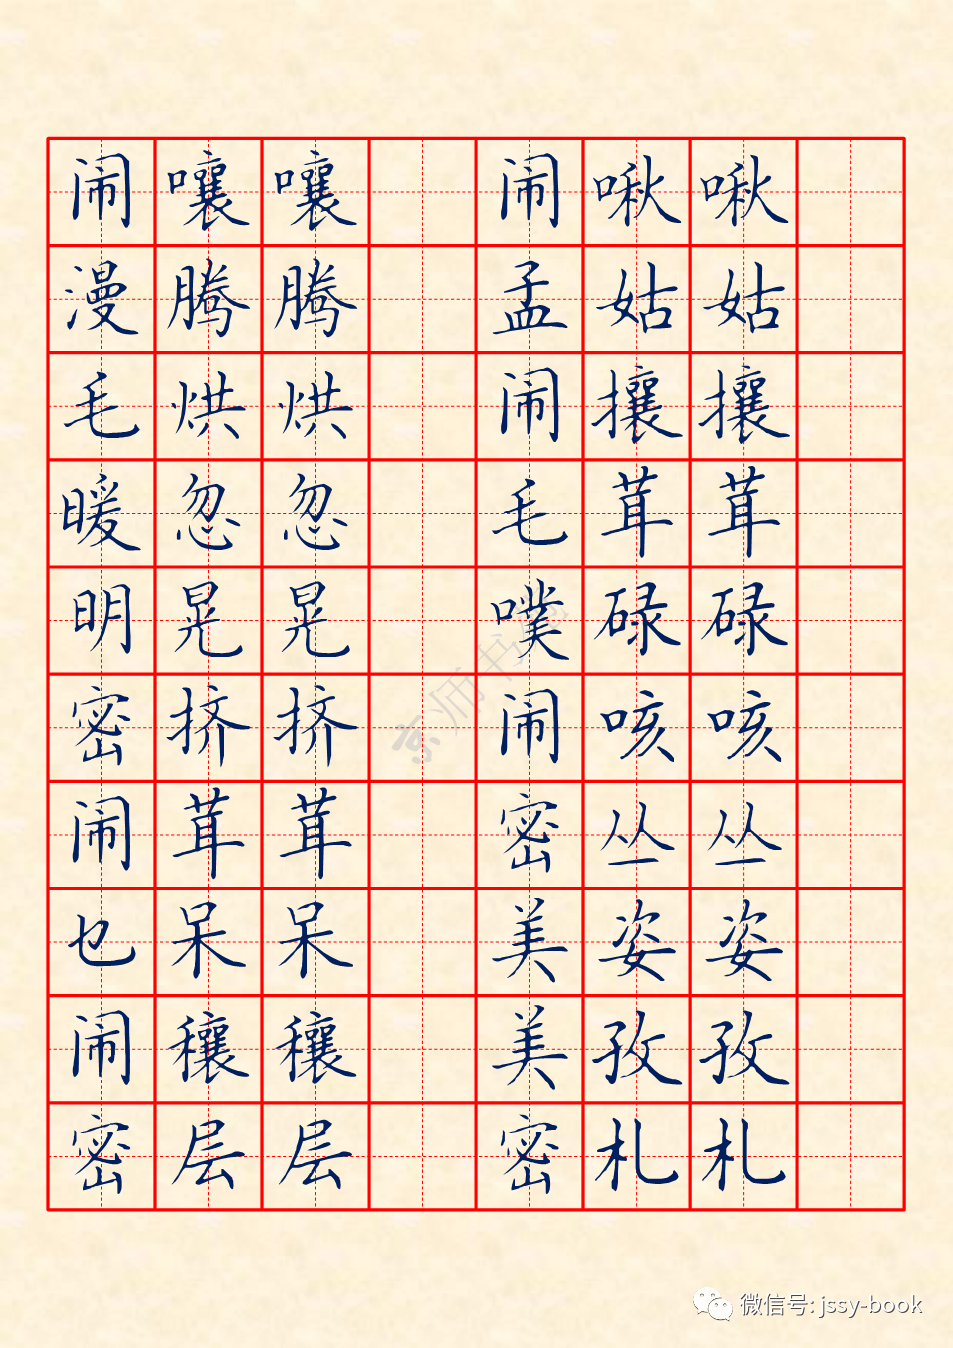 闹嚷嚷 闹啾啾
漫腾腾 孟姑姑
毛烘烘 闹攘攘
暖忽忽 毛茸茸
明晃晃 噗碌碌
密挤挤 闹咳咳
闹茸茸 密丛丛
乜呆呆 美姿姿
闹穰穰 美孜孜
密层层 密札札
京师书苑
微信号: jssy-book